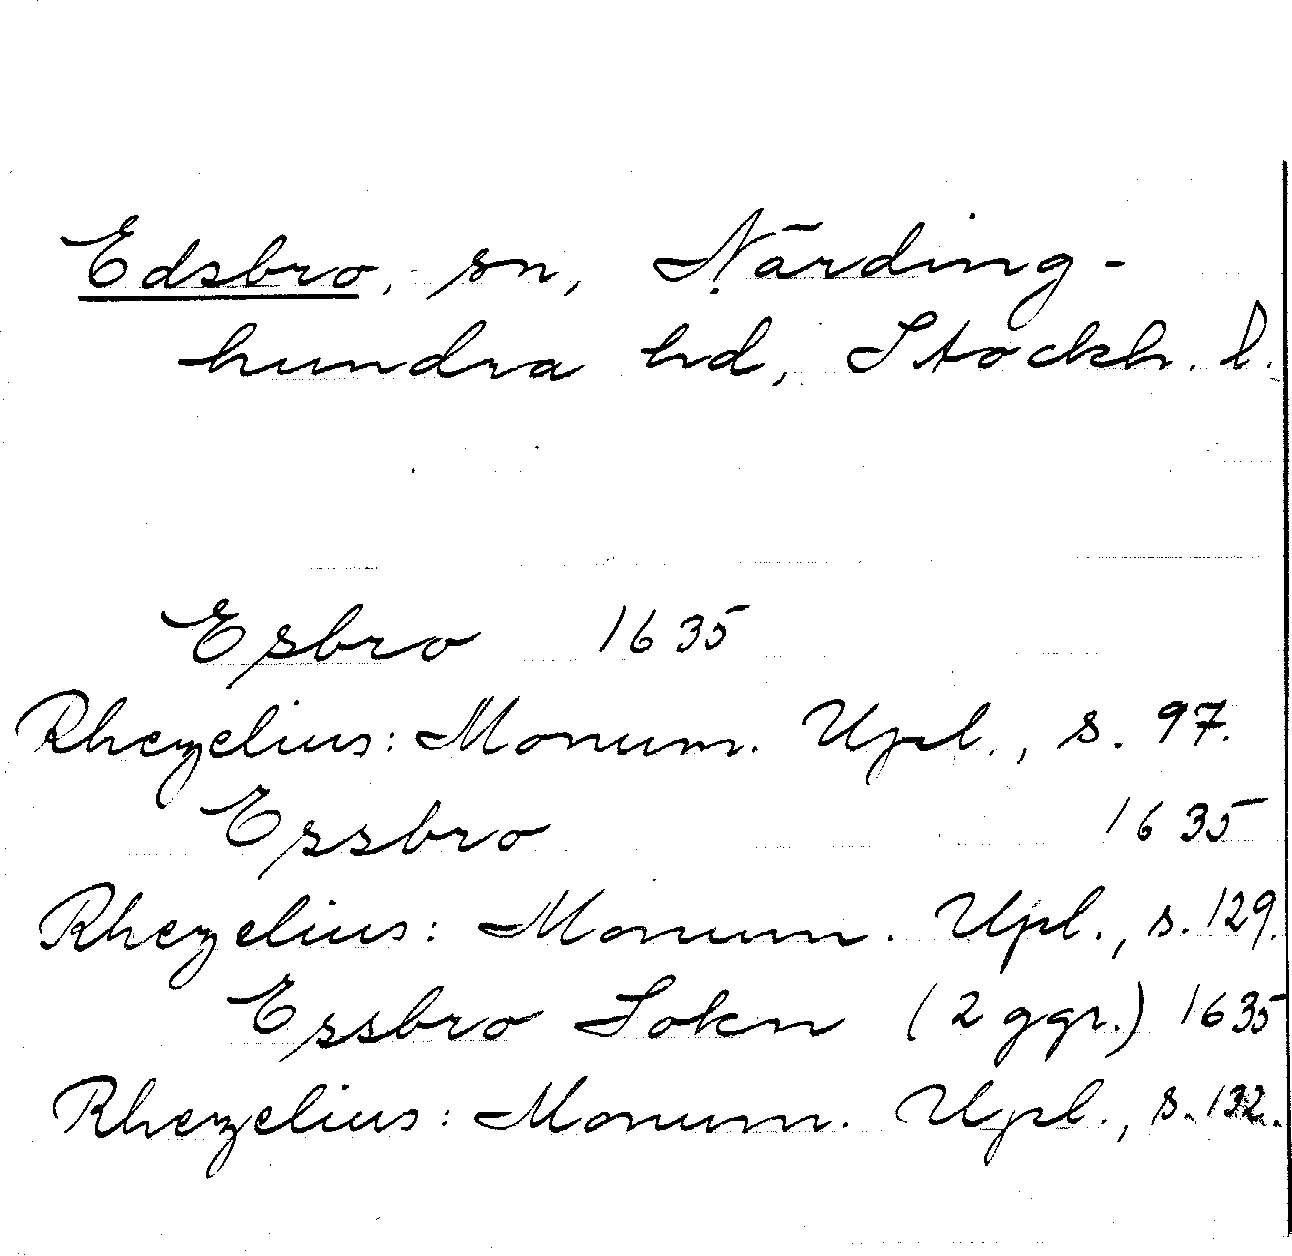 Edsbro, sn, Närding-
hundra hd, Stockh. l.
Esbro 1635
Rhezelius: Monum. Upl., s. 97.
Essbro 1635
Rhezelius: Monum. Upl., s. 129.
Essbro Sokn (2 ggr.) 1635
Rhezelius: Monum. Upl., s. 132.